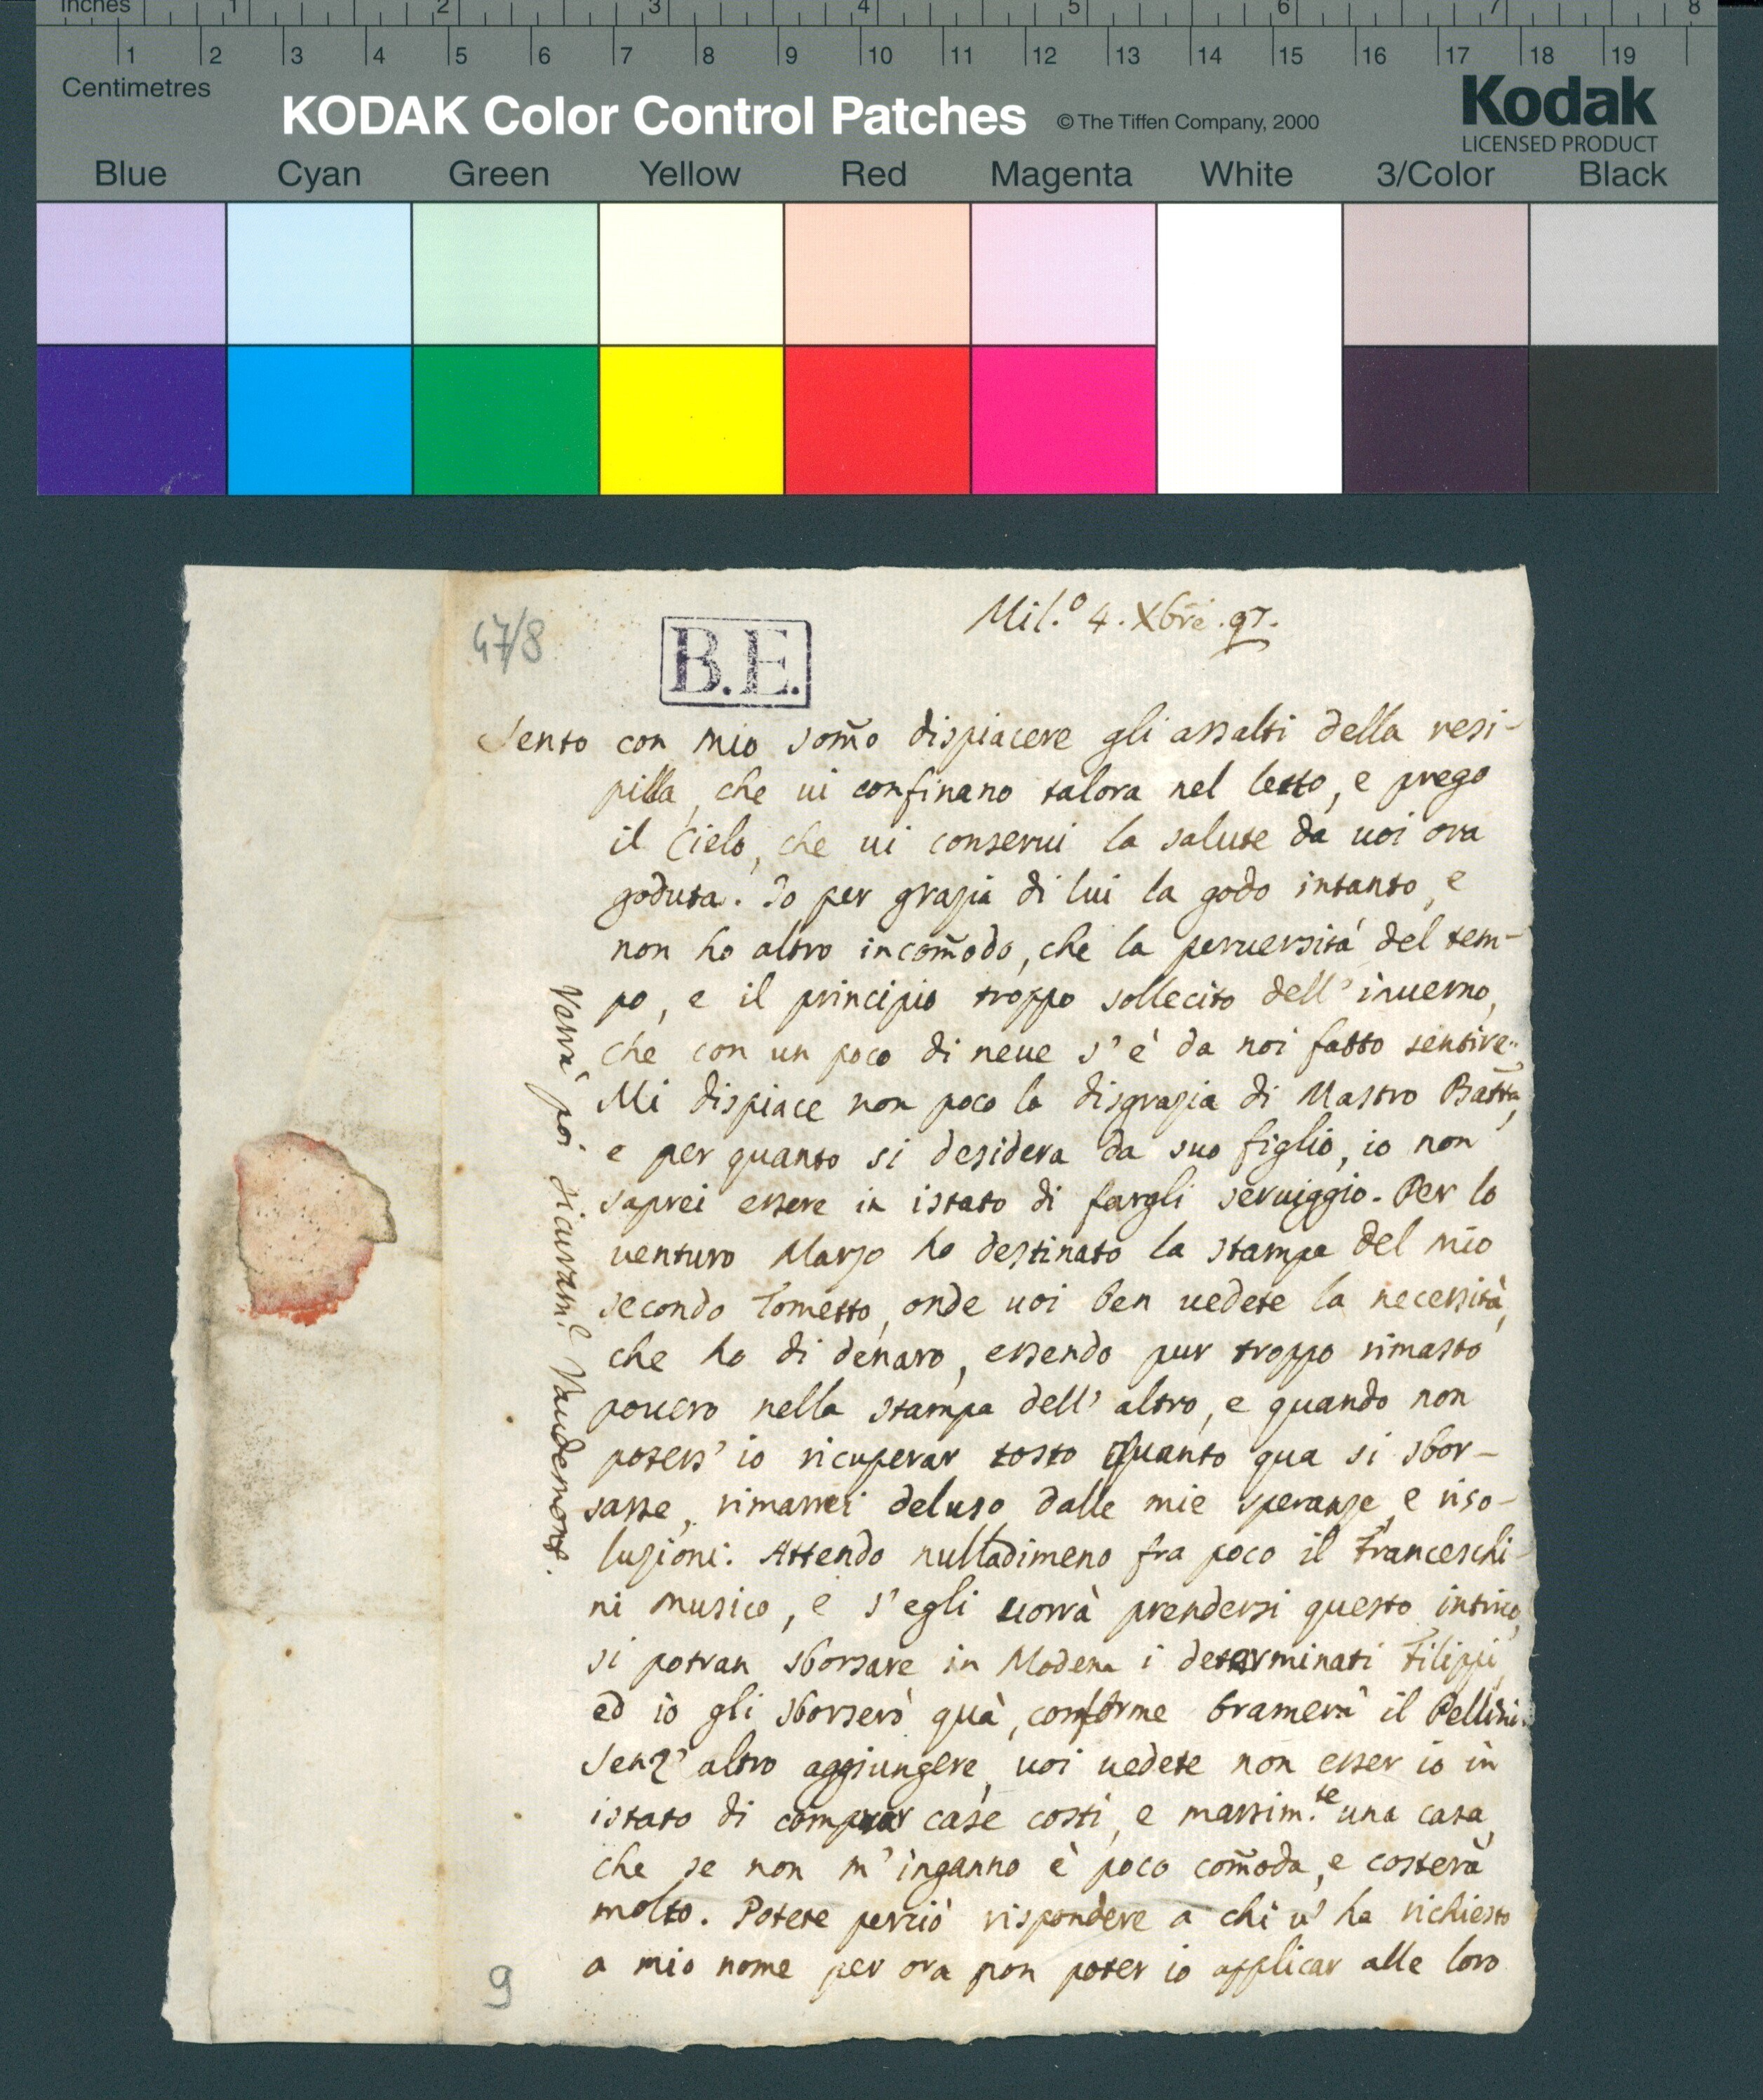 Inches 1 2 3 4 5 6 7 8
1 2 3 4 5 6 7 8 9 10 11 12 13 14 15 16 17 18 19
Centimetres
KODAK Color Control Patches © The Tiffen Company, 2000 Kodak
LICENSED PRODUCT
Blue Cyan Green Yellow Red Magenta White 3/Color Black
47/8
B.E.
Mil.º 4. Xbre. 97.
Sento con mio som̃o dispiacere gli assalti della resi-
pilla, che ui confinano talora nel letto, e prego
il Cielo, che ui conserui la salute da uoi ora
goduta. Io per grazia di lui la godo intanto, e
non ho altro incom̃odo, che la peruersità del tem-
po, e il principio troppo sollecito dell' inuerno,
che con un poco di neue s' è da noi fatto sentire.
Mi dispiace non poco la disgrazia di Mastro Batt̃a,
e per quanto si desidera da suo figlio, io non
saprei essere in istato di fargli seruiggio. Per lo
uenturo Marzo ho destinato la stampa del mio
secondo Tometto, onde uoi ben uedete la necessità,
che ho di denaro, essendo pur troppo rimasto
pouero nella stampa dell' altro, e quando non
potess' io ricuperar tosto quanto qua si sbor-
sasse, rimarrei deluso dalle mie speranze, e riso-
luzioni. Attendo nulladimeno fra poco il Franceschi-
ni musico, e s' egli uorrà prendersi questo intrico,
si potran sborsare in Modena i determinati Filippi,
ed io gli sborserò quà, conforme bramerà il Pellini.
Senz' altro aggiungere, uoi uedete non esser io in
istato di comprar case costì, e massim.te una casa,
che se non m' inganno è poco com̃oda, e costerà
molto. Potete perciò rispondere a chi u' ha richiesto
a mio nome per ora non poter io applicar alle loro
Verrà poi sicuram.e Vaudemont.
9